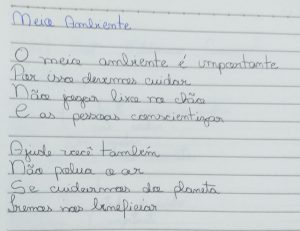 Meio Ambiente
O meio ambiente é importante
Por isso devemos cuidar
Não jogar lixo no chão
E as pessoas conscientizar
Ajude você também
Não polua o ar
Se cuidarmos do planeta
Iremos nos beneficiar